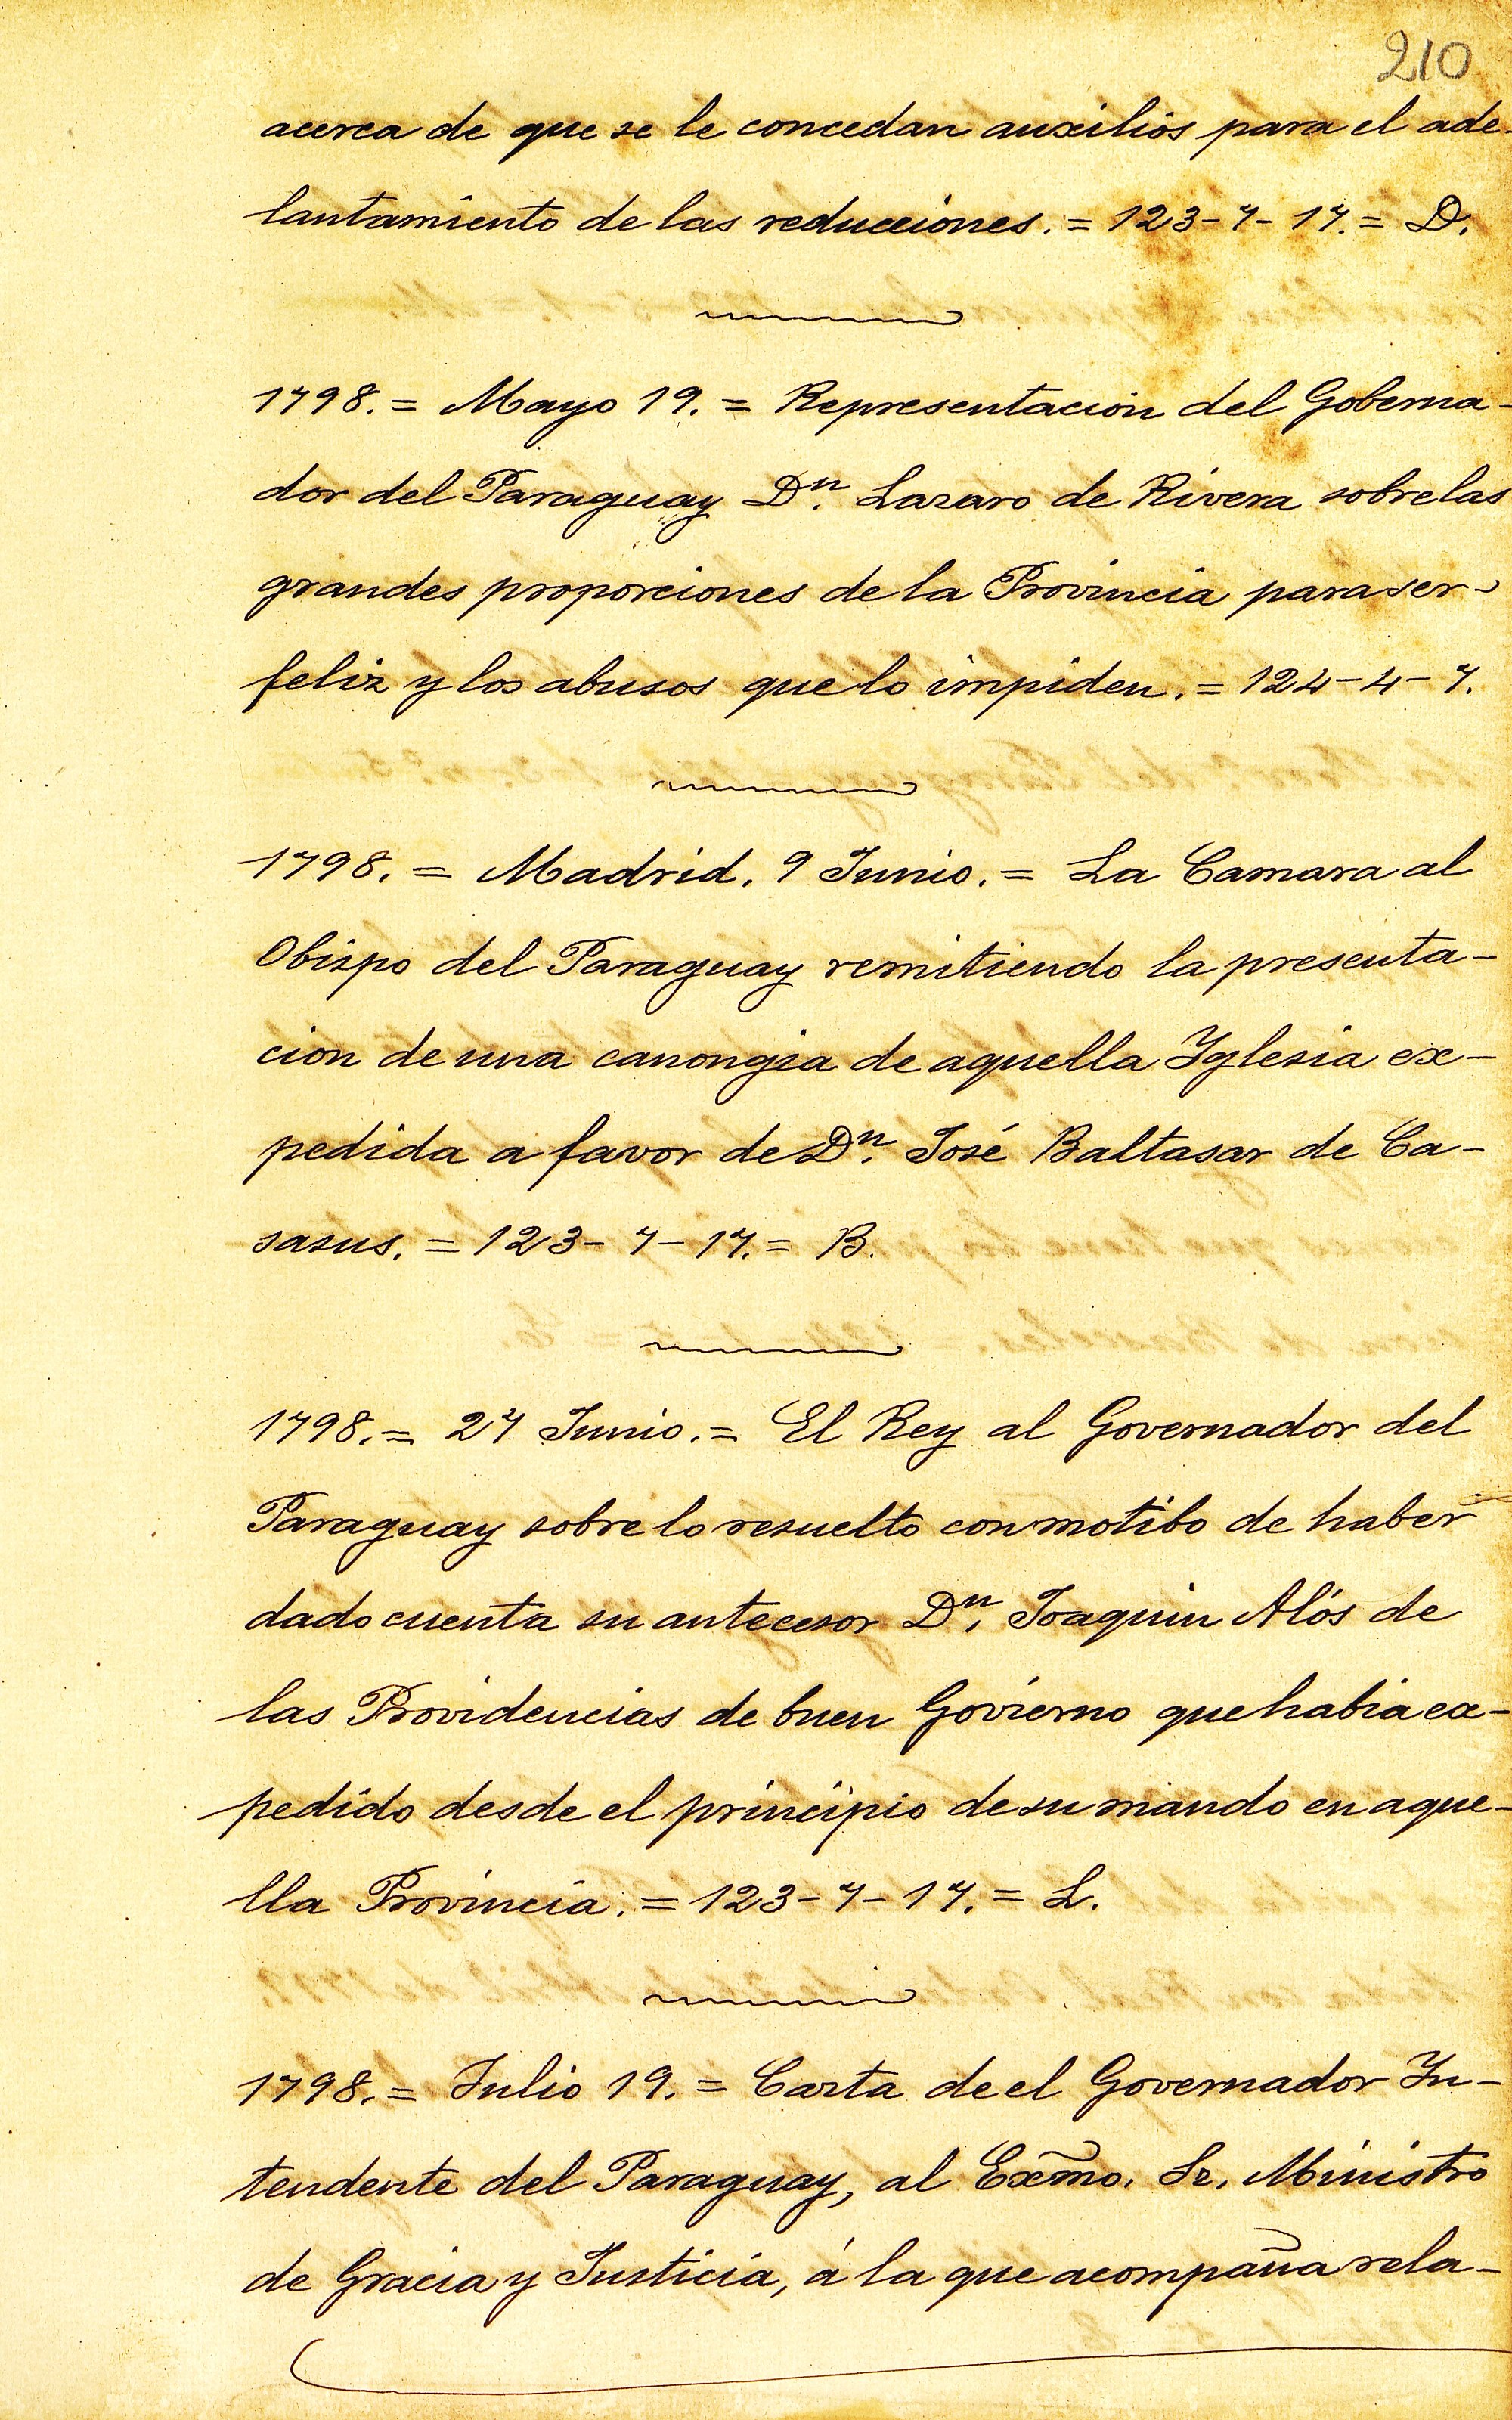 210
acerca de que se le concedan auxilios para el ade-
lantamiento de las reducciones. = 123-7-17. = D.
1798. = Mayo 19. = Representacion del Goberna-
dor del Paraguay Dn. Lazaro de Rivera sobre las
grandes proporciones de la Provincia para ser
feliz y los abusos que lo impiden. = 124-4-7.
1798. = Madrid. 9 Junio. = La Camara al
Obispo del Paraguay remitiendo la presenta-
cion de una canongia de aquella Yglesia ex-
pedida a favor de Dn. José Baltasar de Ca-
sasus. = 123-7-17. = B.
1798. = 27 Junio. = El Rey al Governador del
Paraguay sobre lo resuelto con motibo de haber
dado cuenta su antecesor Dn. Joaquin Alós de
las Providencias de buen Govierno que habia ex-
pedido desde el principio de su mando en aque-
lla Provincia. = 123-7-17. = L.
1798. = Julio 19. = Carta de el Governador Yn-
tendente del Paraguay, al Exm̃o. Sr. Ministro
de Gracia y Justicia, á la que acompaña rela-